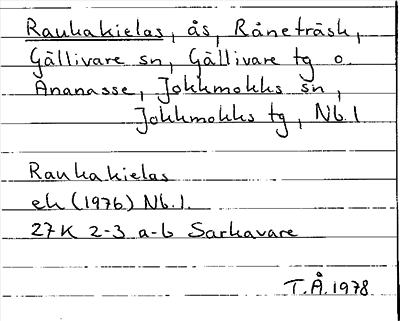 Raukakielas, ås, Råneträsk,
Gällivare sn, Gällivare tg o.
Ananasse, Jokkmokks sn,
Jokkmokks tg, Nb.l
Raukakielas
ek (1976) Nb.l.
27K 2-3 a-b Sarkavare
T.Å. 1978